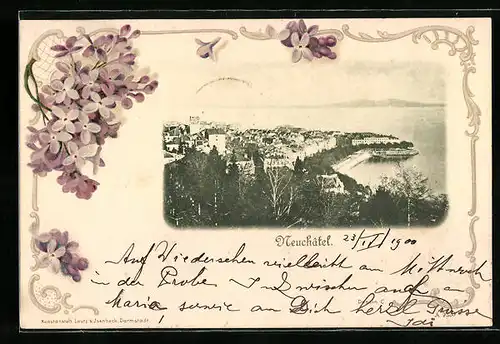 Neuchâtel. 23/IV 1900
Auf Wiedersehen vielleicht am Mittwoch
in der Probe Inzwischen an
Maria, sowie an Dich herzl. Grüsse
Kunstanstalt Lautz & Isenbeck, Darmstadt